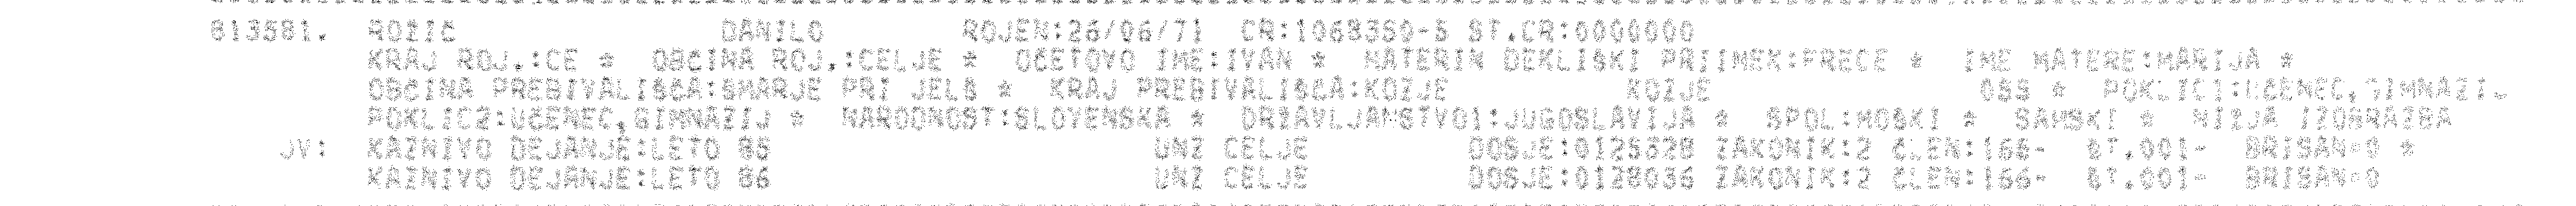 813581. ROZIC DANILO ROJEN:26/06/71 CR:1068350-5 ST.CR:0000000
KRAJ ROJ.:CE * OBčINA ROJ.:CELJE * OčETOVO IME:IVAN * MATERIN DEKLIŠKI PRIIMEK:FRECE * IME MATERE:MARIJA *
OBčINA PREBIVALIŠčA:ŠMARJE PRI JELŠ * KRAJ PREBIVALIŠčA:KOZJE KOZJE * POKLIC1:UčENEC,GIMNAZI.
POKLIC2:UčENEC,GIMNAZIJ * NARODNOST:SLOVENSKA * DRZAVLJANSTVO1:JUGOSLAVIJA * SPOL:MOŠKI * SAMSKI * NIZJA IZOBRAZBA
JV: KAZNIVO DEJANJE:LETO 85 UNZ CELJE DOSJE: ZAKONIK:2 čLEN:166- ŠT.001- BRISAN=0 *
KAZNIVO DEJANJE:LETO 86 UNZ CELJE DOSJE:0128036 ZAKONIK:2 čLEN:166- ŠT.001- BRISAN=0